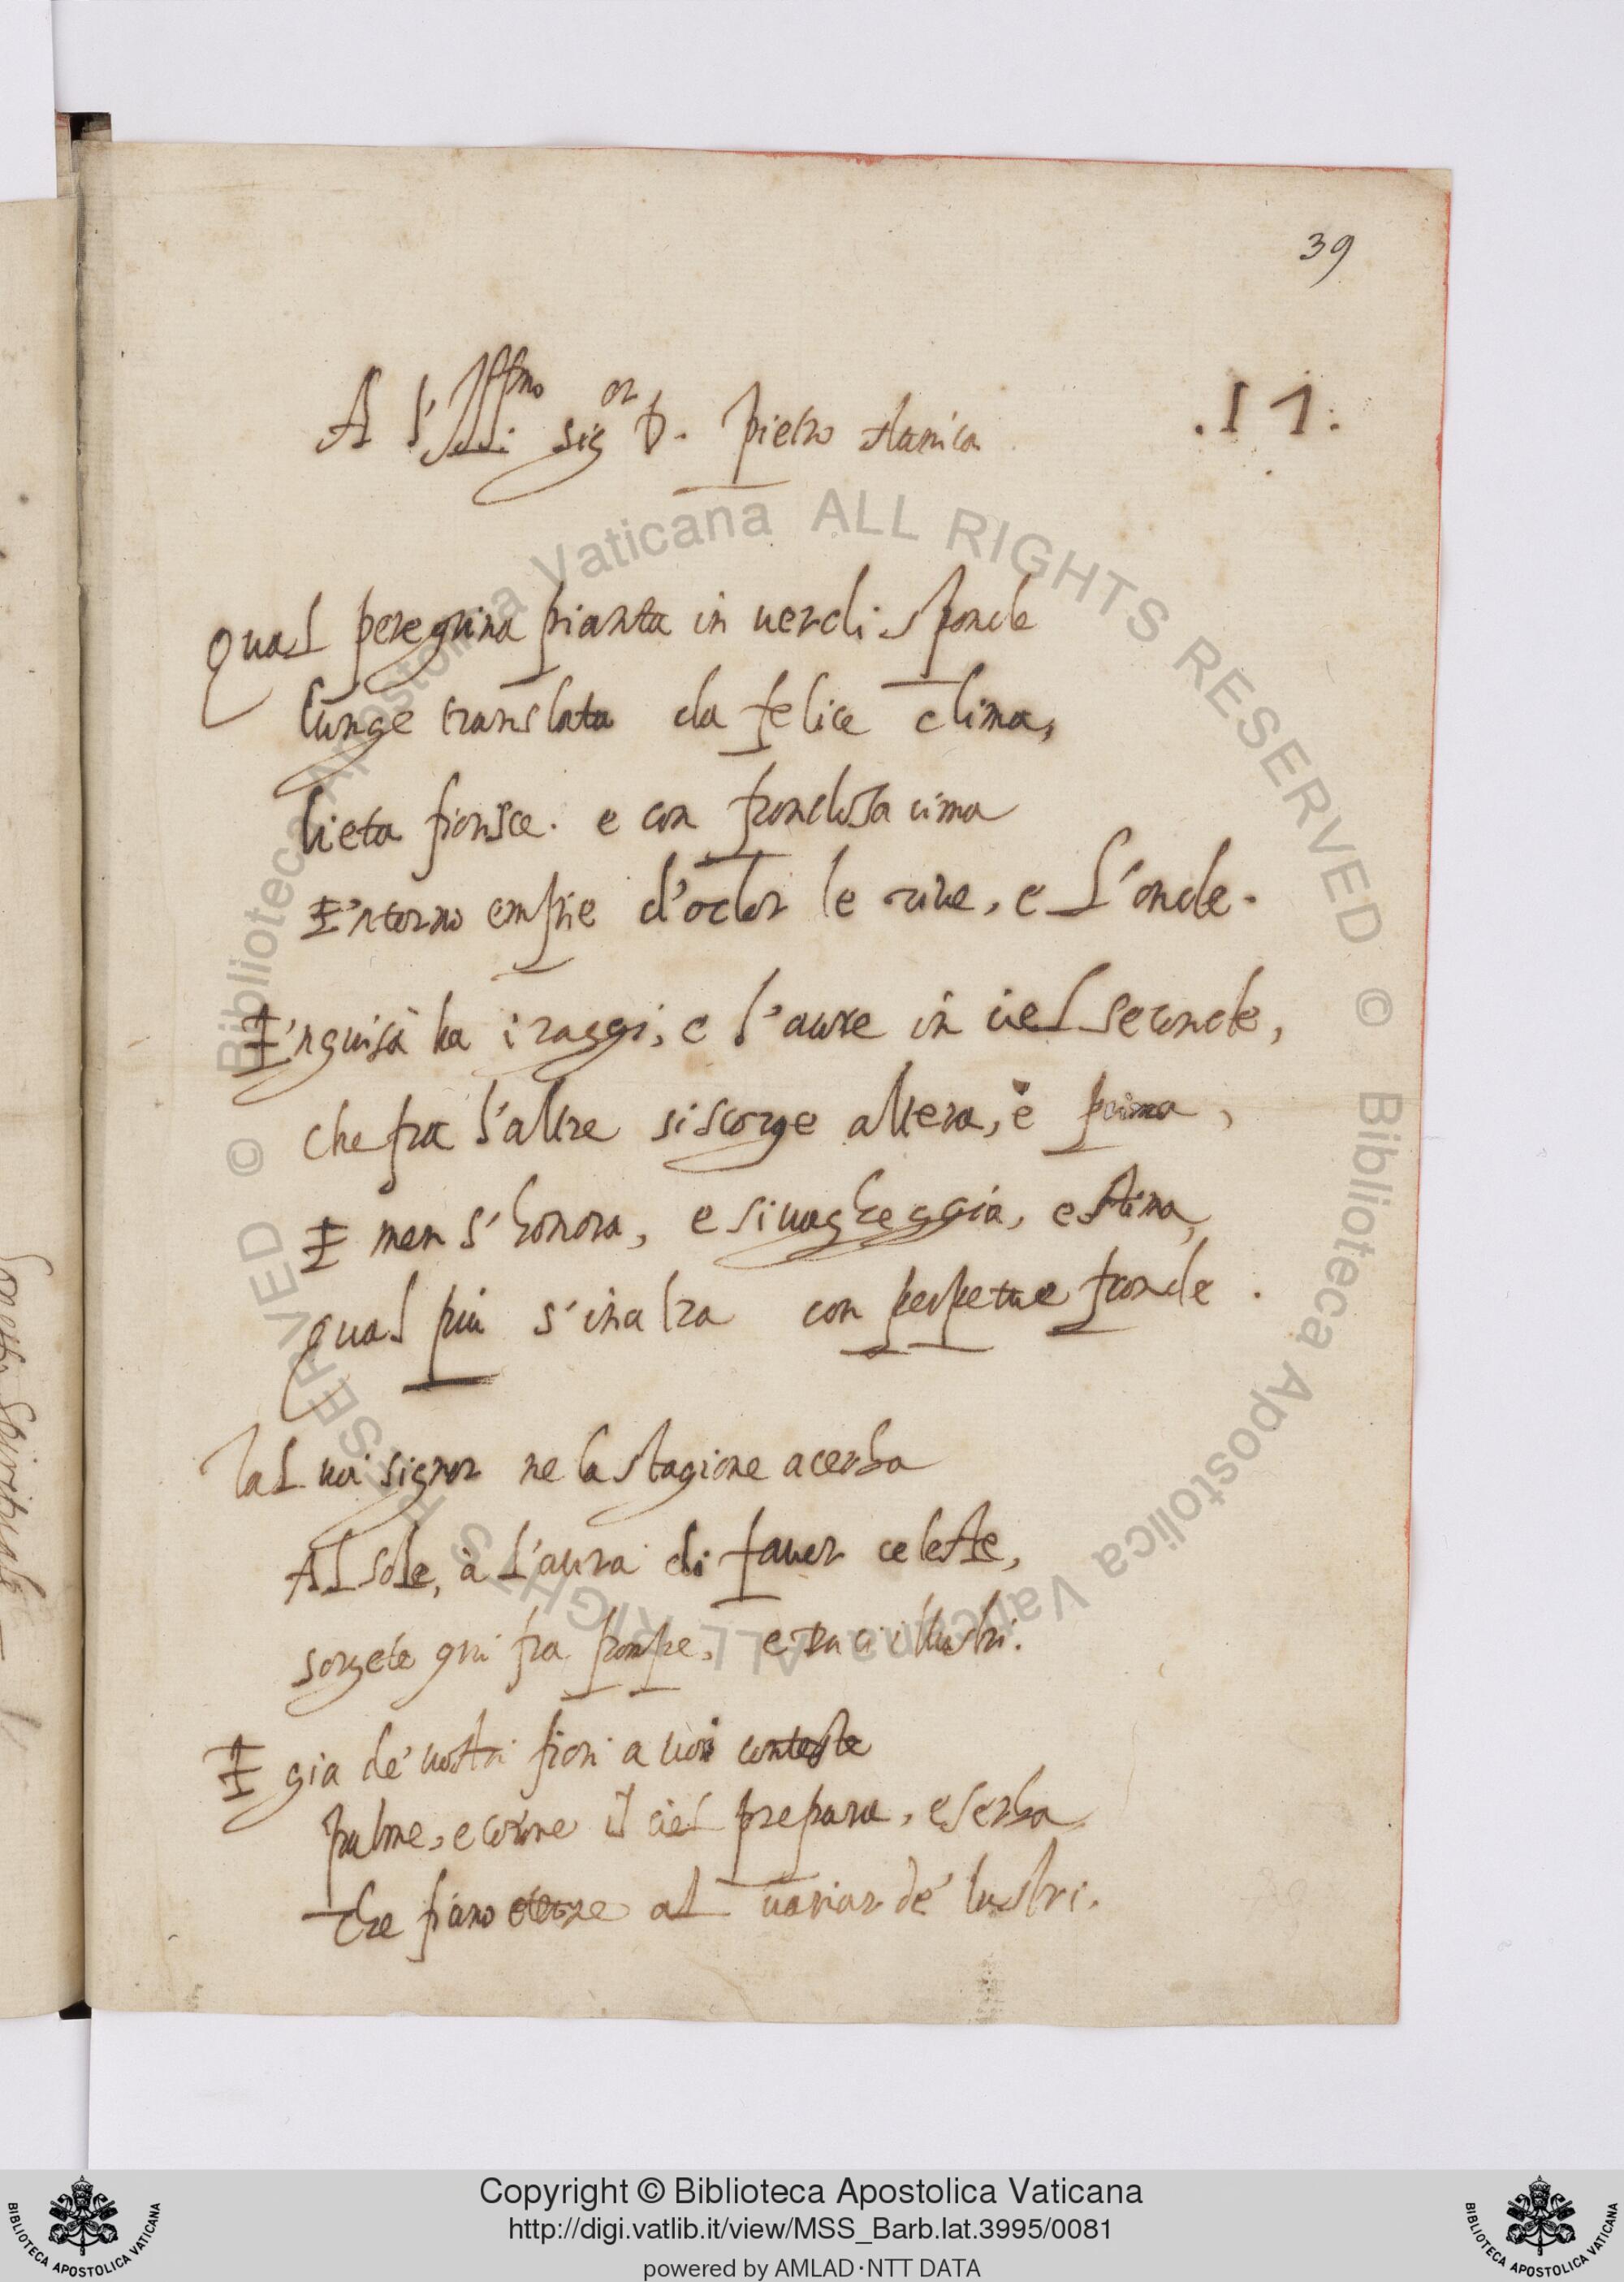 39
A l'Ill.mo sig.or D. Pietro
.S 1.
Qual peregrina pianta in verdi sponde
lunge translata da felice clima,
lieta fiorisce. e con frondosa cima
E 'ntorno empie d'odor le rive, e l'onde.
E 'nguisa ha i raggi, e l'aure in ciel seconde,
che fra l'altre si scorge altera, e prima,
E men s'honora, e si vagheggia, e stima,
qual più s'inalza con perpetue fronde.
Tal voi signor ne la stagione acerba
Al sole, à l'aura di favor celeste,
sorgete qui fra pompe, e Duci illustri.
E gia de' vostri fiori a voi conteste
palme, e corone il ciel prepara, e serba
Che fiano eterne al variar de' lustri.
© Biblioteca Apostolica Vaticana ALL RIGHTS RESERVED
© Biblioteca Apostolica Vaticana ALL RIGHTS RESERVED
Copyright © Biblioteca Apostolica Vaticana
http://digi.vatlib.it/view/MSS_Barb.lat.3995/0081
powered by AMLAD·NTT DATA
BIBLIOTECA APOSTOLICA VATICANA
BIBLIOTECA APOSTOLICA VATICANA